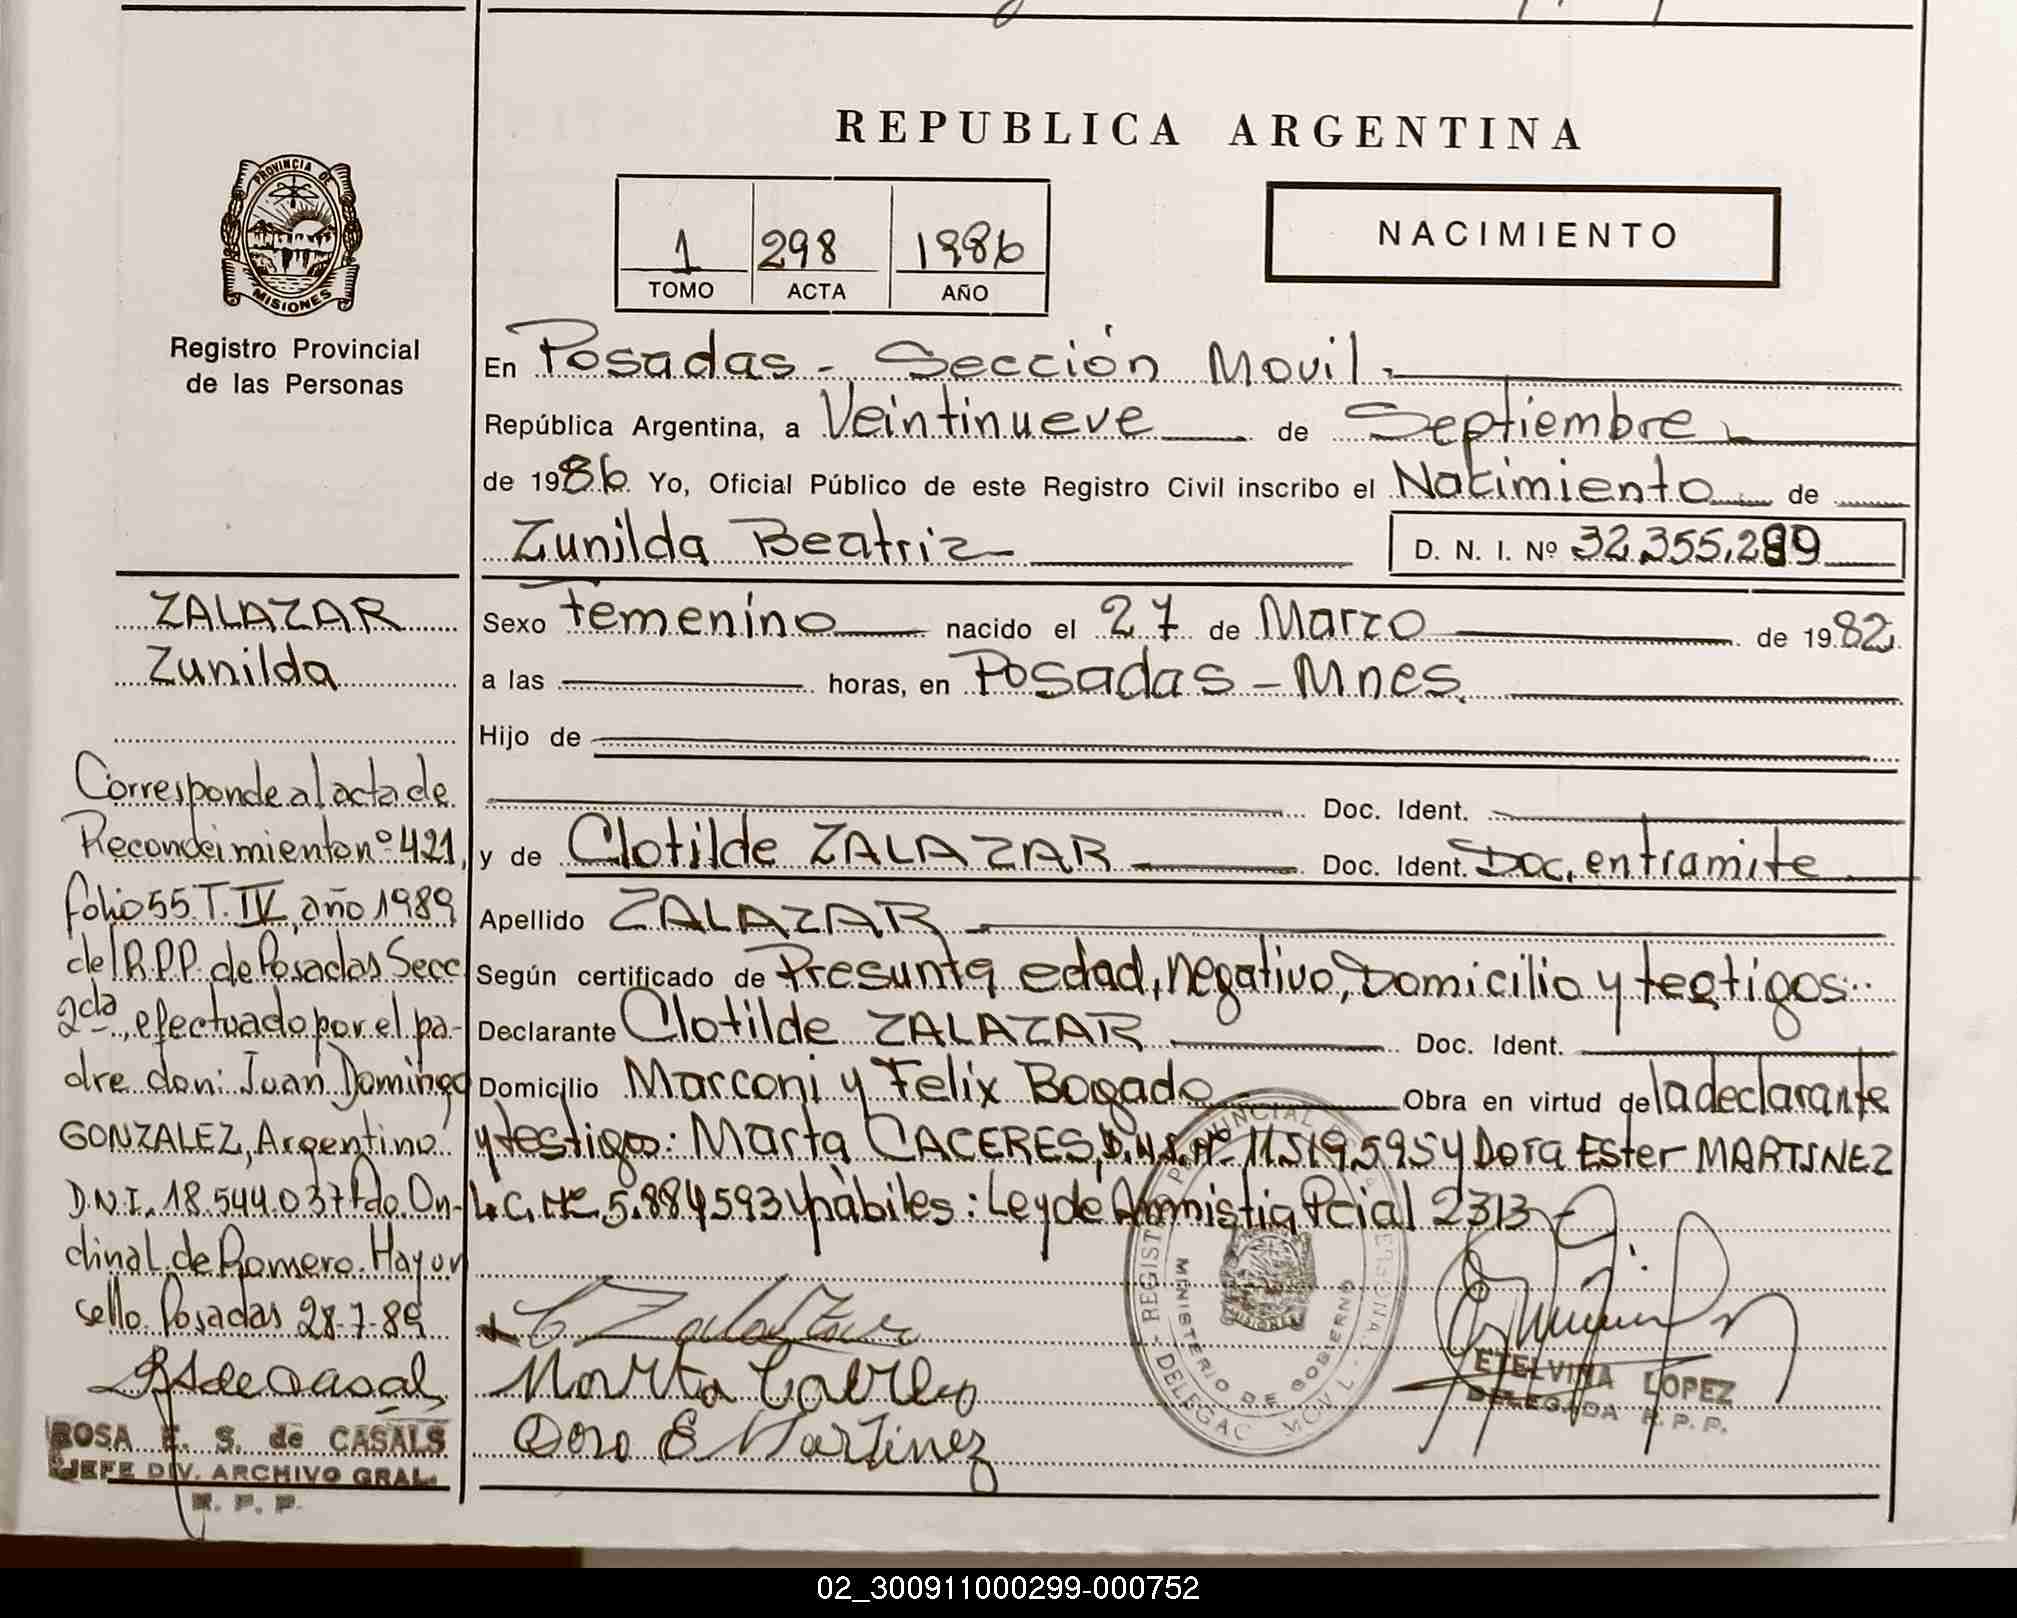 REPUBLICA ARGENTINA
PROVINCIA DE
MISIONES
Registro Provincial
de las Personas
1 298 1986
TOMO ACTA AÑO
NACIMIENTO
En Posadas - Sección Movil.
República Argentina, a Veintinueve de Septiembre
de 1986 Yo, Oficial Público de este Registro Civil inscribo el Nacimiento de
Zunilda Beatriz D. N. I. Nº 32.355.289
Sexo femenino nacido el 27 de Marzo de 1982
a las horas, en Posadas - Mnes.
Hijo de
Doc. Ident.
y de Clotilde ZALAZAR Doc. Ident. Doc. en tramite
Apellido ZALAZAR
Según certificado de Presunta edad, negativo, Domicilio y testigos
Declarante Clotilde ZALAZAR Doc. Ident.
Domicilio Marconi y Felix Bogado Obra en virtud de la declarante
y testigos: Marta CACERES, D.N.I. Nº 11.519.595 y Dora Ester MARTINEZ
L.C. Nº 5.884.593 y hàbiles: Ley de Amnistia Pcial 2313
ZALAZAR
Zunilda
Corresponde al acta de
Reconocimiento nº 421,
folio 55 T. IV, año 1989
del R.P.P. de Posadas Secc
2da, efectuado por el pa-
dre don: Juan Domingo
GONZALEZ, Argentino
D.N.I. 18.544.037 fdo. On-
dina L. de Romero. Hay un
sello. Posadas 28-7-89
ROSA E. S. de CASALS
JEFE DIV. ARCHIVO GRAL.
R. P. P.
C Zalazar
Marta
Dora E Martinez
MINISTERIO DE GOBIERNO
ETELVINA LOPEZ
DELEGADA R. P. P.
02_300911000299-000752